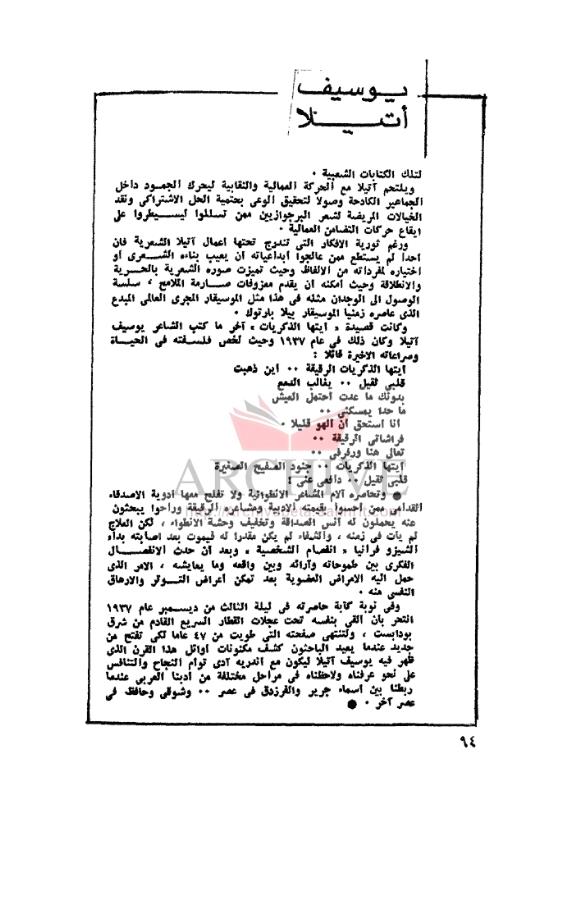 يوسيف
أتيلا
لتلك الكتابات الشعبية .
ويلتحم آتيلا مع الحركة العمالية والنقابية ليحرك الجمود داخل
الجماهير الكادحة وصولا لتحقيق الوعى بحتمية الحل الاشتراكى ونقد
الخيالات المريضة لشعر البرجوازيين ممن تسللوا ليسيطروا على
ايقاع حركات التضامن العمالية .
ورغم ثورية الافكار التى تندرج تحتها اعمال آتيلا الشعرية فان
احدا لم يستطع ممن عالجوا ابداعياته ان يعيب بناءه الشعرى او
اختياره لمفرداته من الالفاظ وحيث تميزت صوره الشعرية بالحرية
والانطلاقة وحيث امكنه ان يقدم معزوفات صارمة الملامح ، سلسة
الوصول الى الوجدان مثله فى هذا مثل الموسيقار المجرى العالمى المبدع
الذى عاصره زمنيا الموسيقار بيلا بارتوك .
وكانت قصيدة « ايتها الذكريات » آخر ما كتب الشاعر يوسيف
آتيلا وكان ذلك فى عام ١٩٣٧ وحيث لخص فلسفته فى الحياة
وصراعاته الاخيرة قائلا :
ايتها الذكريات الرقيقة ٠٠ اين ذهبت
قلبى ثقيل ٠٠ يغالب الدمع
بدونك ما عدت احتمل العيش
ما حدا يمسكنى ٠٠
انا استحق ان الهو قليلا .
فراشاتى الرقيقة ٠٠
تعال هنا ورفرفى ٠٠
ايتها الذكريات ٠٠ جنود الصفيح الصغيرة
قلبى ثقيل ٠٠ دافعى عنى !
● وتحاصره آلام المشاعر الانطوائية ولا تفلح معها ادوية الاصدقاء
القدامى ممن احسوا بقيمته الادبية ومشاعره الرقيقة وراحوا يبحثون
عنه يحملون له انس الصداقة وتخفيف وحشة الانطواء ، لكن العلاج
لم يات فى زمنه ، والشفاء لم يكن مقدرا له فيموت بعد اصابته بداء
الشيزو فرانيا « انفصام الشخصية » وبعد ان حدث الانفصال
الفكرى بين طموحاته وآرائه وبين واقعه وما يعايشه ، الامر الذى
حمل اليه الامراض العضوية بعد تمكن أعراض التوتر والارهاق
النفسى منه .
وفى نوبة كآبة حاصرته فى ليلة الثالث من ديسمبر عام ١٩٣٧
انتحر بان القى بنفسه تحت عجلات القطار السريع القادم من شرق
بودابست ، ولتنتهى صفحته التى طويت من ٤٧ عاما لكى تفتح من
جديد عندما يعيد الباحثون كشف مكنونات اوائل هذا القرن الذى
ظهر فيه يوسيف آتيلا ليكون مع اندريه آدى توأم النجاح والتنافس
على نحو عرفناه ولاحظناه فى مراحل مختلفة من ادبنا العربى عندما
ربطنا بين اسماء جرير والفرزدق فى عصر ٠٠ وشوقى وحافظ فى
عصر آخر . ●
٩٤
ARCHIVE